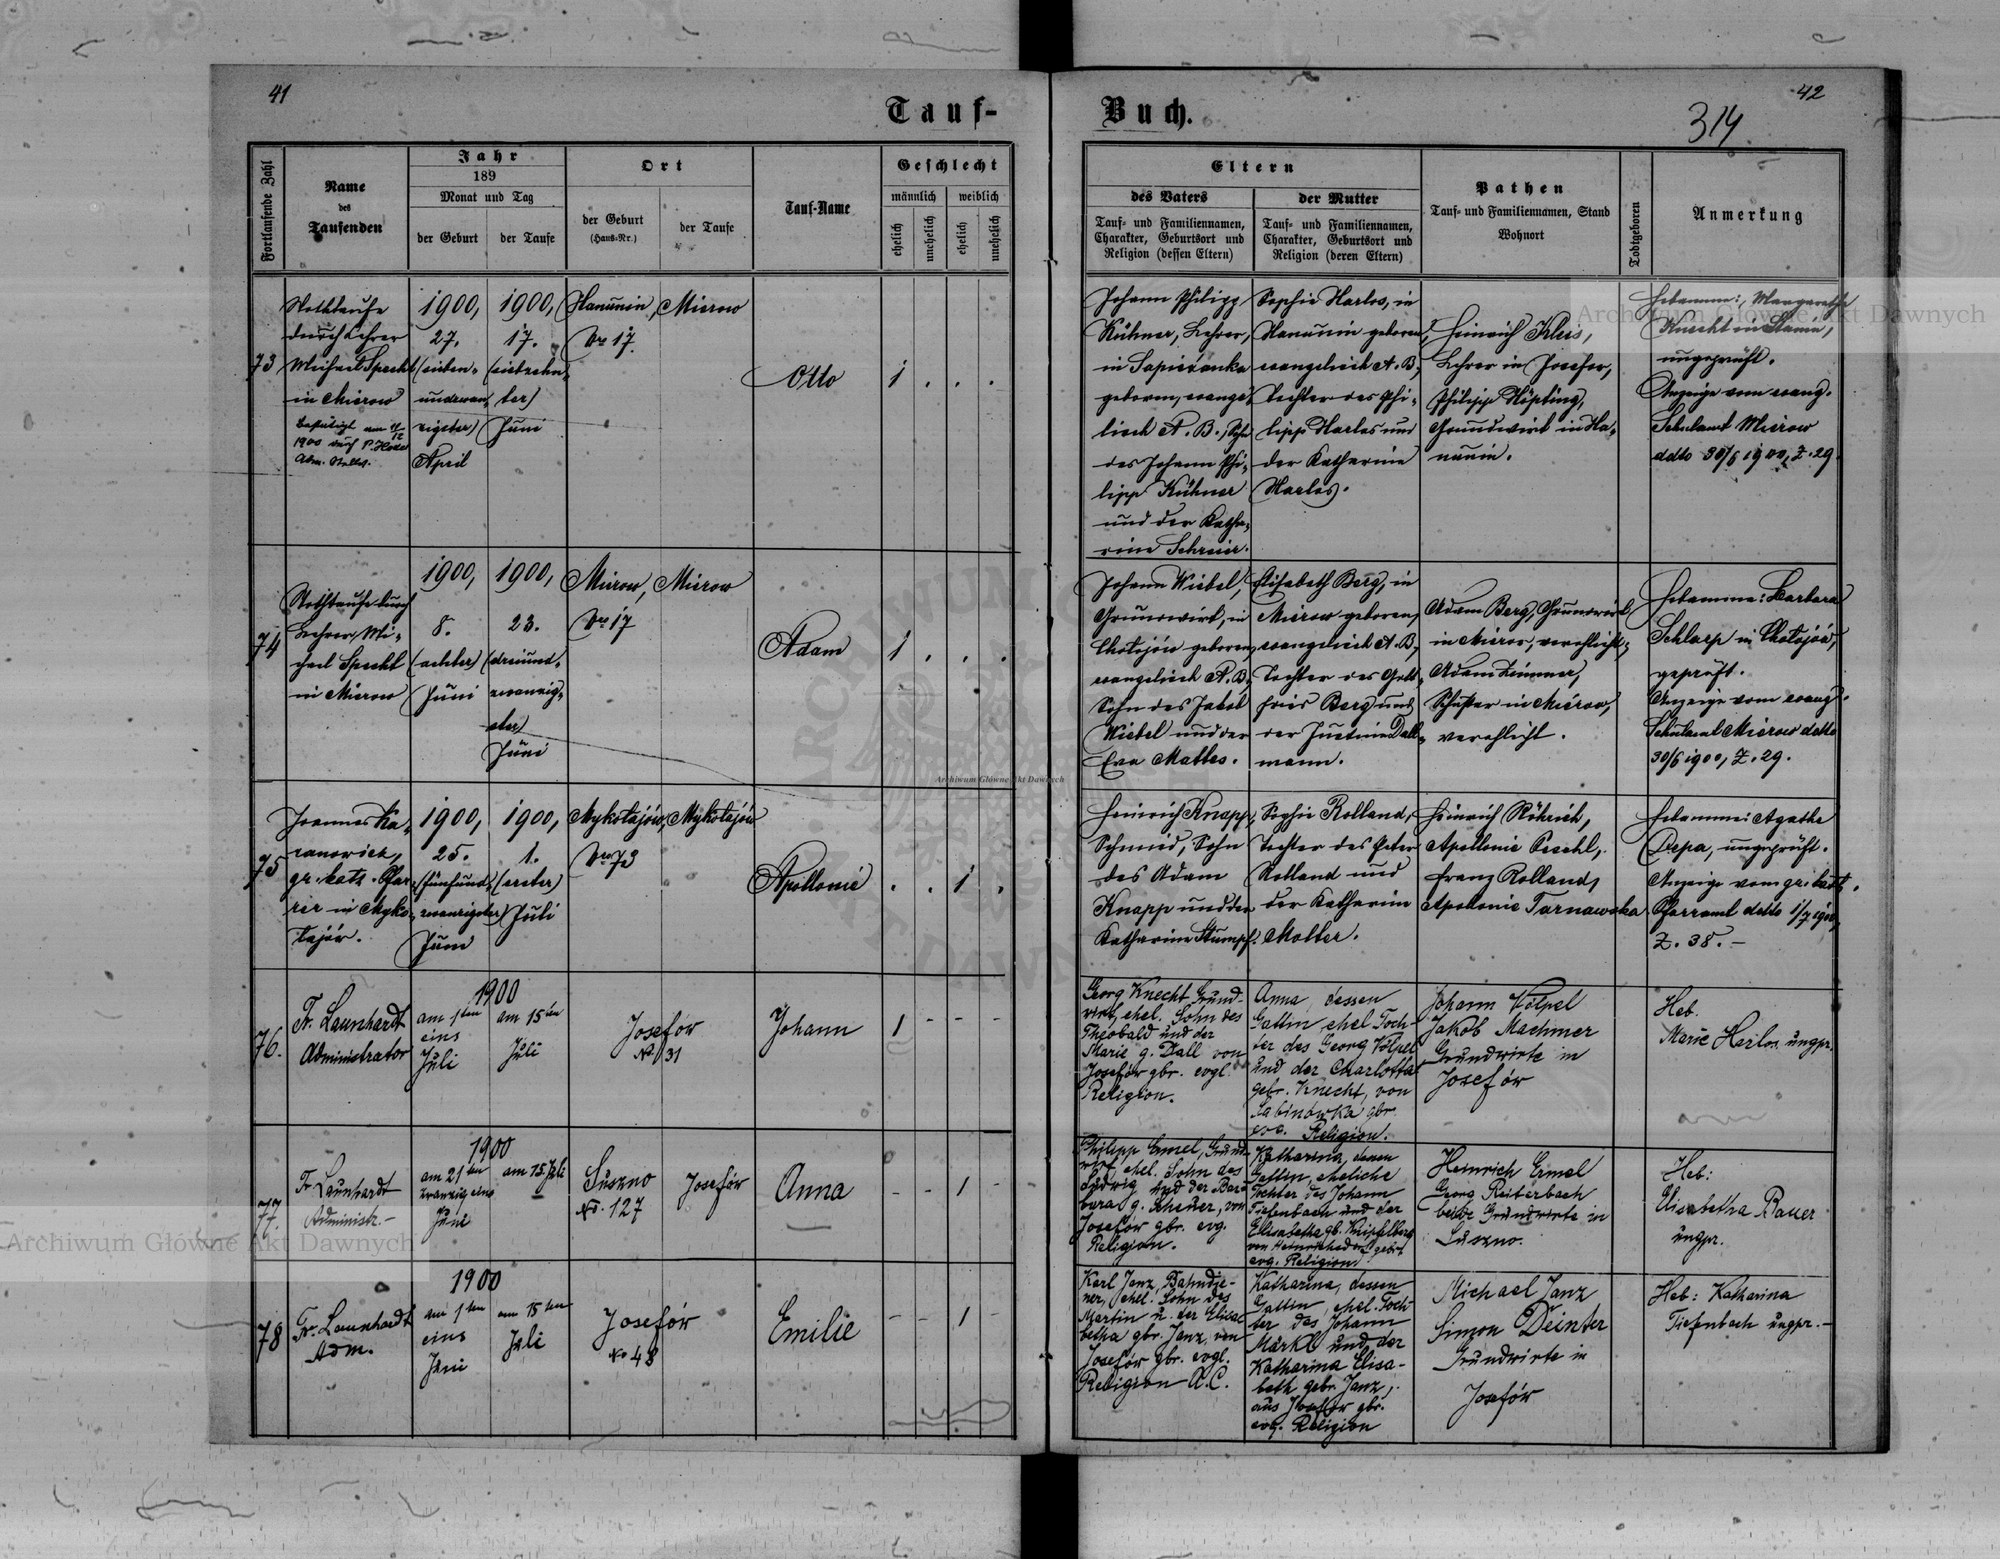 41
42
314
Tauf-
Buch.
Fortlaufende Zahl
Name
des
Taufenden
Jahr
189
Monat und Tag
der Geburt
der Taufe
Ort
der Geburt
(Haus-Nr.)
der Taufe
Tauf-Name
Geschlecht
männlich
weiblich
ehelich
unehelich
ehelich
unehelich
Eltern
des Vaters
Tauf- und Familiennamen,
Charakter, Geburtsort und
Religion (dessen Eltern)
der Mutter
Tauf- und Familiennamen,
Charakter, Geburtsort und
Religion (deren Eltern)
Pathen
Tauf- und Familiennamen, Stand
Wohnort
Todtgeboren
Anmerkung
73
Nothtaufe
durch Lehrer
Michael Specht
in Mierow
1900,
27.
(sieben-
undzwan-
zigster)
April
1900,
17.
(siebzehn-
ter)
Juni
Hanunin,
Nro 17.
Mierow
Otto
1 . . .
Johann Philipp
Kühner, Lehrer,
in Sapiezanka
geboren, evange-
lisch A. B., Sohn
des Johann Phi-
lipp Kühner
und der Katha-
rine Schreier.
Sophie Harlos, in
Hanunin geboren,
evangelisch A. B.,
Tochter des Phi-
lipp Harlos und
der Katharine
Harlos.
Heinrich Kleis,
Lehrer in Josefow,
Philipp Hipting,
Grundwirt in Ha-
nunin.
Hebamme: Margarethe
Knecht in Stanin,
ungeprüft.
Anzeige vom evang.
Schulamt Mierow
ddto 30/6 1900, Z. 29.
74
Nothtaufe durch
Lehrer Mi-
chael Specht
in Mierow
1900,
8.
(achter)
Juni
1900,
23.
(dreiund-
zwanzig-
ster)
Juni
Mierow,
Nro 17
Mierow
Adam
1 . . .
Johann Wiebel,
Grundwirt, in
Chołojów geboren,
evangelisch A. B.,
Sohn des Jakob
Wiebel und der
Eva Mattes.
Elisabeth Berg, in
Mierow geboren,
evangelisch A. B.,
Tochter des Gott-
fried Berg und
der Justine Dall-
mann.
Adam Berg, Grundwirt
in Mierow, verehlicht,
Adam Zimmer,
Schuster in Mierow,
verehlicht.
Hebamme: Barbara
Schlarp in Chołojów,
geprüft.
Anzeige vom evang.
Schulamt Mierow ddto
30/6 1900, Z. 29.
75
Joannes Ka-
ranovicz,
gr. kath. Pfar-
rer in Myko-
łajów.
1900,
25.
(fünfund-
zwanzigster)
Juni
1900,
1.
(erster)
Juli
Mykołajów,
Nro 73
Mykołajów
Apollonie
. . 1 .
Heinrich Knapp,
Schmied, Sohn
des Adam
Knapp und der
Katharine Stumpf.
Sophie Rolland,
Tochter des Peter
Rolland und
der Katharine
Molter.
Heinrich Röhrich,
Apollonie Peschl,
Franz Rolland,
Apollonie Tarnawska
Hebamme: Agathe
Depa, ungeprüft.
Anzeige vom gr. kath.
Pfarramt ddto 1/7 1900,
Z. 38. –
76.
Fr. Launhardt
Administrator
1900
am 1ten
eins
Juli
am 15ten
Juli
Josefór
No. 31
Johann
1 - - -
Georg Knecht Grund-
wirt, ehel. Sohn des
Theobald und der
Marie g. Dall von
Josefór gbr. evgl.
Religion.
Anna, dessen
Gattin ehel. Toch-
ter des Georg Völpel
und der Charlotta
gebr. Knecht, von
Sabinówka gbr.
eva. Religion.
Johann Völpel
Jakob Machmer
Grundwirte in
Josefór
Heb.
Marie Harlos. ungpr.
77.
Fr. Launhardt
Administr. –
1900
am 21ten
zwanzig eins
Juni
am 15. Juli
Suszno
No. 127
Josefór
Anna
- - 1 -
Philipp Ermel, Grund-
wirt, ehel. Sohn des
Ludwig und der Bar-
bara g. Scheuer, von
Josefór gbr. evg.
Religion.
Katharina, dessen
Gattin, eheliche
Tochter des Johann
Tiefenbach und der
Elisabetha gb. Knipfelberg
von Heinrichsdorf gebr.
evg. Religion
Heinrich Ermel
Georg Reiterbach
beide Grundwirte in
Suszno.
Heb:
Elisabetha Bauer
ungpr.
78
Fr. Launhardt
Adm.
1900
am 1ten
eins
Juni
am 15ten
Juli
Josefór
No 48
Emilie
- - 1 -
Karl Janz, Bahndie-
ner, ehel. Sohn des
Martin u. der Elisa-
betha gbr. Janz, von
Josefór gbr. evgl.
Religion A.C.
Katharina, dessen
Gattin, ehel. Toch-
ter des Johann
Märkl und der
Katharina Elisa-
beth gebr. Janz,
aus Josefór gbr.
evg. Religion
Michael Janz
Simon Deinter
Grundwirte in
Josefór
Heb: Katharina
Tiefenbach ungpr. –
Archiwum Główne Akt Dawnych
Archiwum Główne Akt Dawnych
Archiwum Główne Akt Dawnych